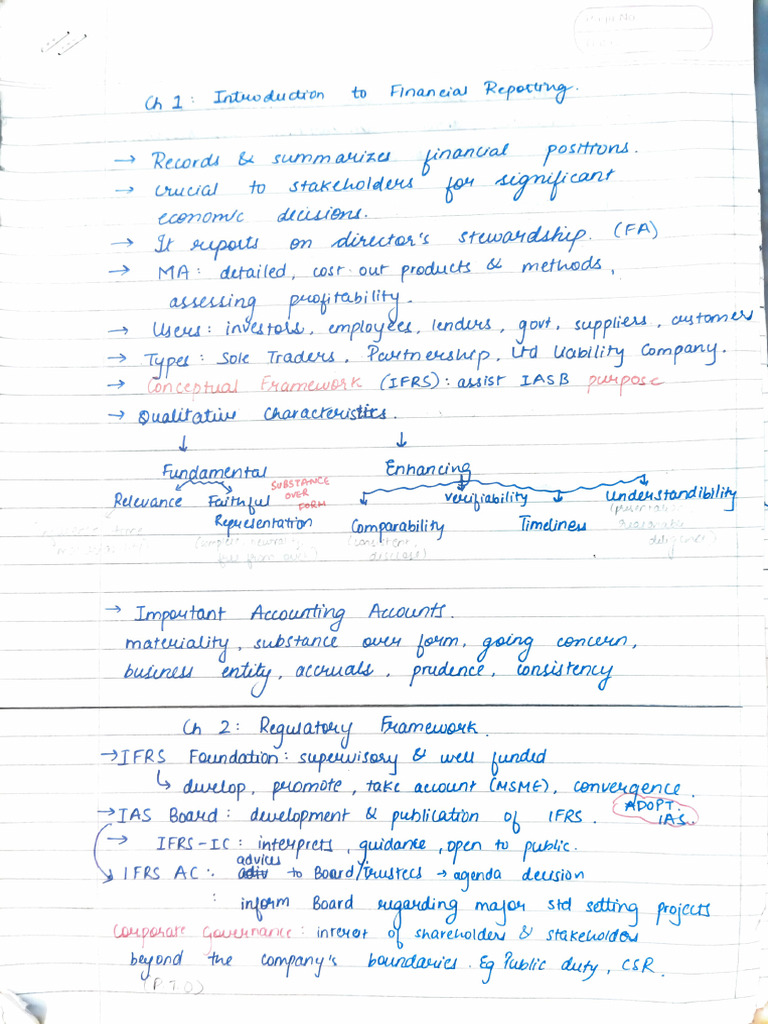 Page No.
Ch 1: Introduction to Financial Reporting.
→ Records & summarizes financial positions.
→ crucial to stakeholders for significant
economic decisions.
→ It reports on director's stewardship. (FA)
→ MA: detailed, cost out products & methods,
assessing profitability.
→ Users: investors, employees, lenders, govt, suppliers, customers
→ Types: Sole Traders, Partnership, Ltd Liability Company.
→ Conceptual Framework (IFRS): assist IASB purpose
→ Qualitative Characteristics.
↓ ↓
Fundamental Enhancing
Relevance Faithful SUBSTANCE OVER FORM Verifiability Understandibility
Representation Comparability Timeliness
(consistent, disclose) (presentation reasonable deligence)
→ Important Accounting Accounts.
materiality, substance over form, going concern,
business entity, accruals, prudence, consistency
Ch 2: Regulatory Framework.
→ IFRS Foundation: supervisory & well funded
↳ develop, promote, take account (MSME), convergence.
→ IAS Board: development & publication of IFRS. ADOPT. IAS.
→ IFRS-IC: interprets, guidance, open to public.
→ IFRS AC: advices to Board/Trustees → agenda decision
: inform Board regarding major std setting projects
Corporate Governance: interest of shareholders & stakeholders
beyond the company's boundaries. Eg Public duty, CSR.
(P.T.O)